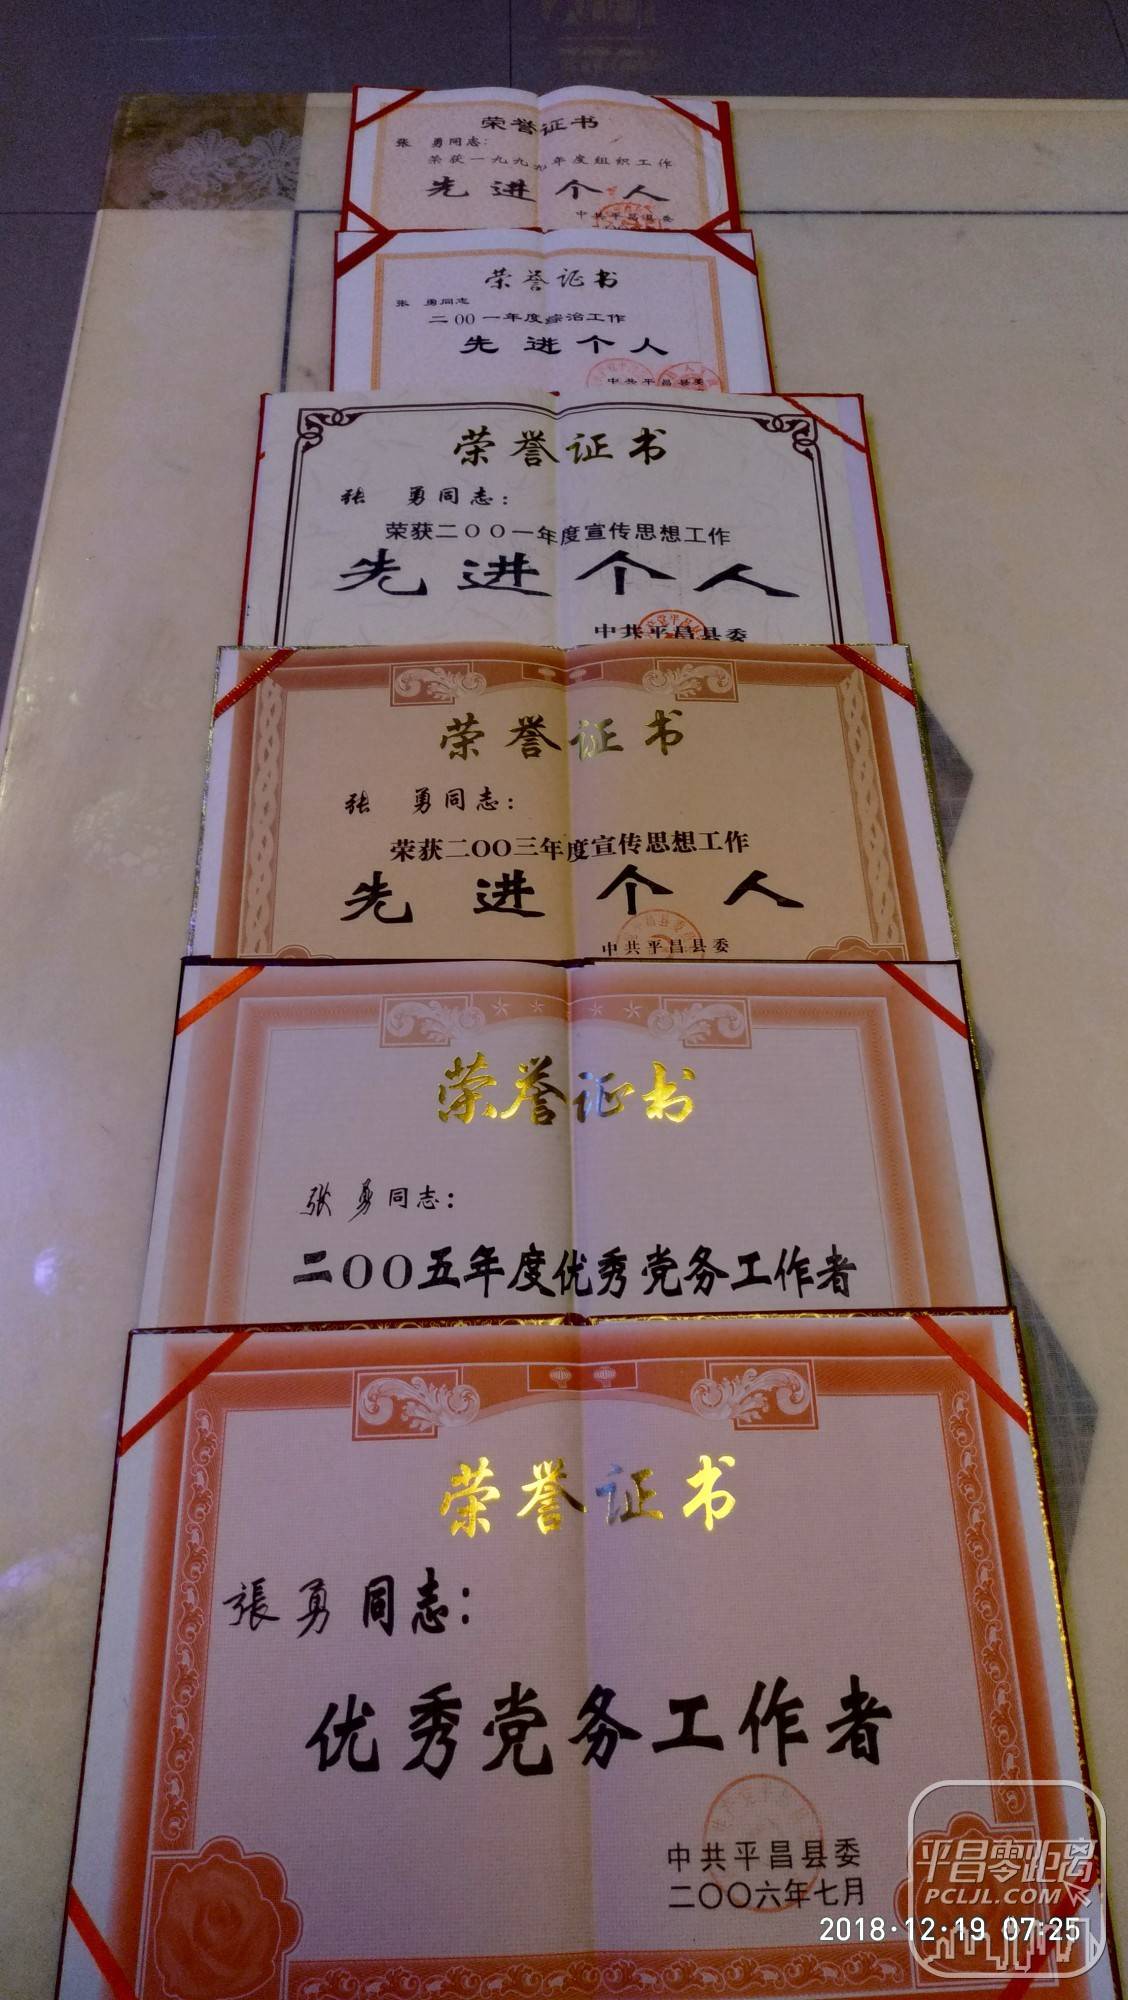 荣誉证书
张 勇同志:
荣获一九九九年度组织工作
先进个人
中共平昌县委
荣誉证书
张 勇同志
二00一年度综治工作
先进个人
中共平昌县委
荣誉证书
张 勇同志：
荣获二OO一年度宣传思想工作
先进个人
中共平昌县委
荣誉证书
张 勇同志：
荣获二OO三年度宣传思想工作
先进个人
中共平昌县委
荣誉证书
张勇同志：
二OO五年度优秀党务工作者
荣誉证书
張勇同志：
优秀党务工作者
中共平昌县委
二〇〇六年七月
平昌零距离
PCLJL.COM
2018·12·19 07:25